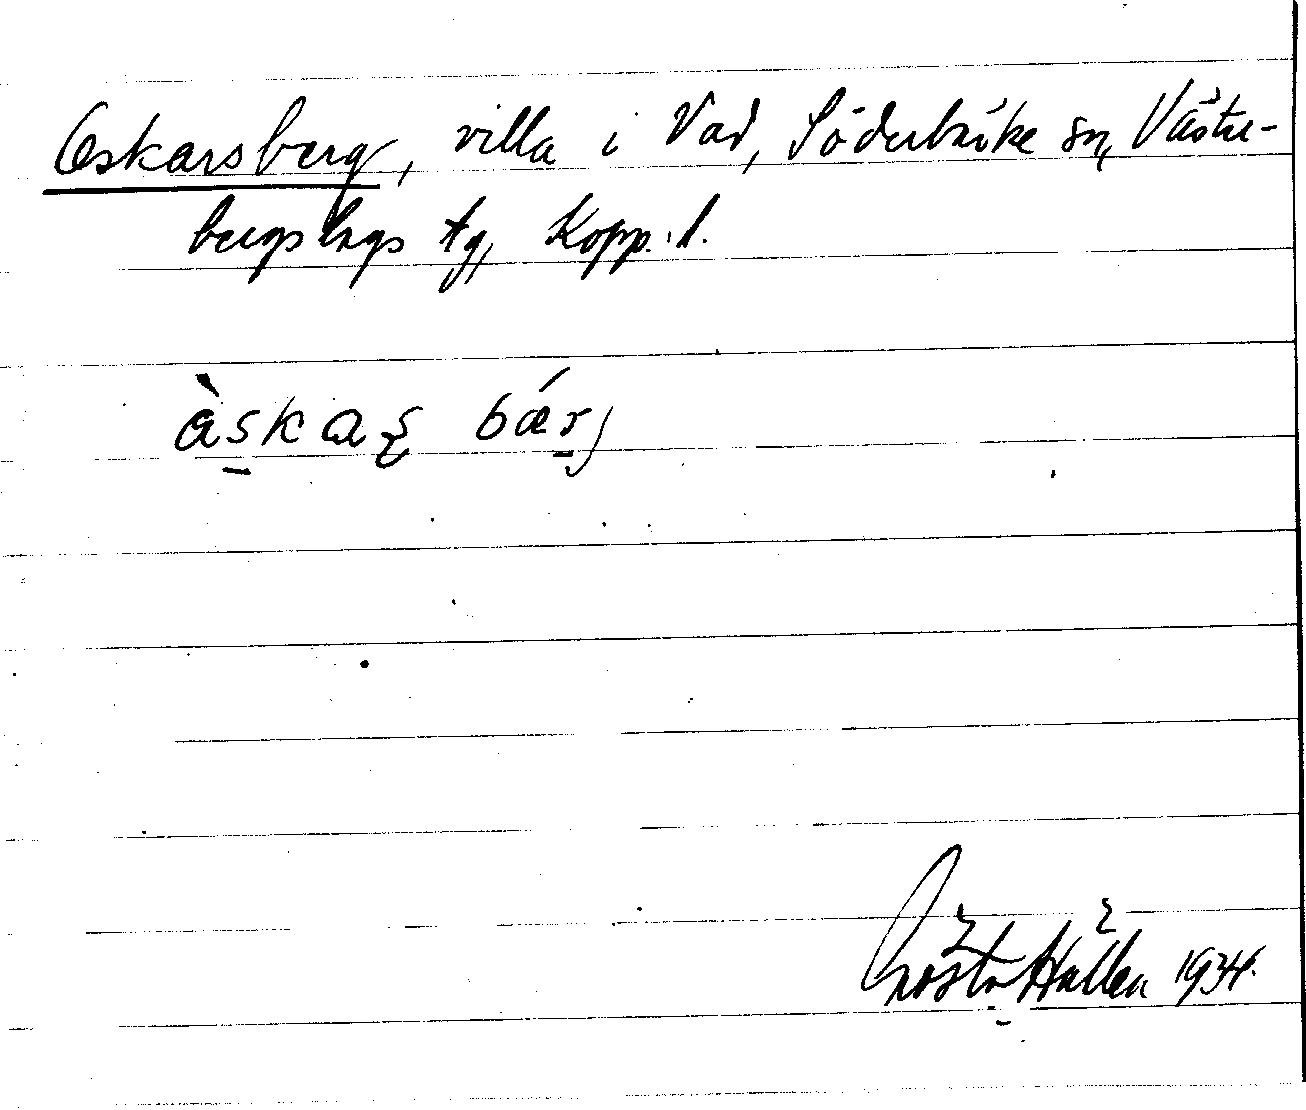 Oskarsberg, villa i Vad, Söderbärke sn, Väster-
bergslags tg, Kopp. l.
àskaʂ bǽrj
Gösta Hallén 1934.